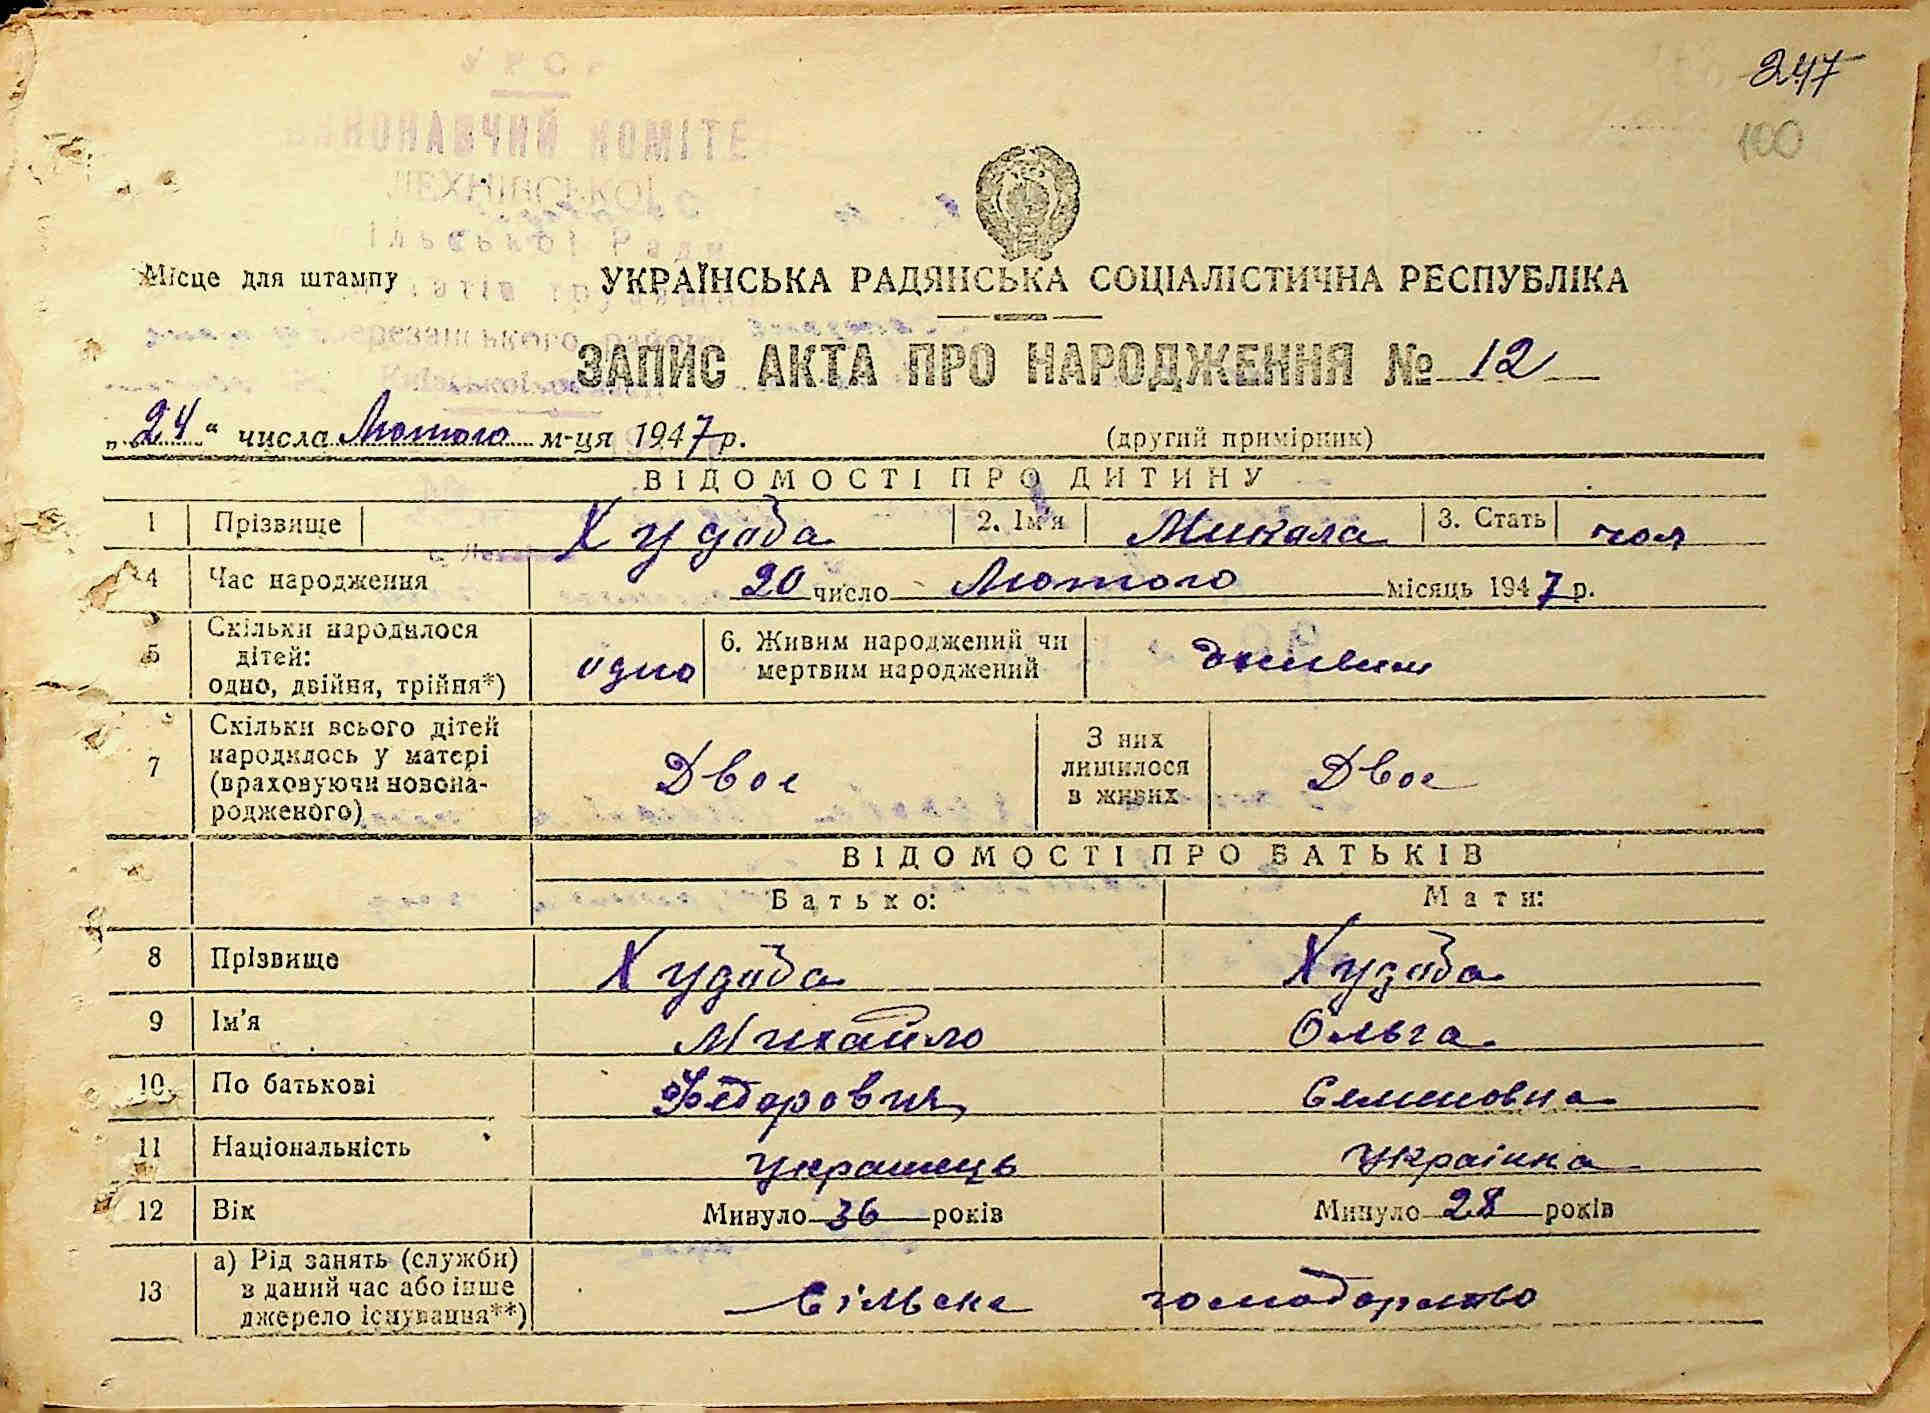 247
100
УРСР
ВИКОНАВЧИЙ КОМІТЕ
ЛЕХНІВСЬКОЇ
ільської Ради
Місце для штампу
УКРАЇНСЬКА РАДЯНСЬКА СОЦІАЛІСТИЧНА РЕСПУБЛІКА
Березанського район
Київської
ЗАПИС АКТА ПРО НАРОДЖЕННЯ № 12
„24“ числа Лютого м-ця 1947 р.
(другий примірник)
ВІДОМОСТІ ПРО ДИТИНУ
1 Прізвище Худоба 2. Ім'я Микола 3. Стать чол
4 Час народження 20 число Лютого місяць 1947 р.
5 Скільки народилося дітей: одно, двійня, трійня*) одно 6. Живим народжений чи мертвим народжений живим
7 Скільки всього дітей народилось у матері (враховуючи новона-родженого) Двое З них лишилося в живих Двое
ВІДОМОСТІ ПРО БАТЬКІВ
Батько: Мати:
8 Прізвище Худоба Худоба
9 Ім'я Михайло Ольга
10 По батькові Федорович Семеновна
11 Національність украінець украінка
12 Вік Минуло 36 років Минуло 28 років
13 а) Рід занять (служби) в даний час або інше джерело існування**) Сільске господарство